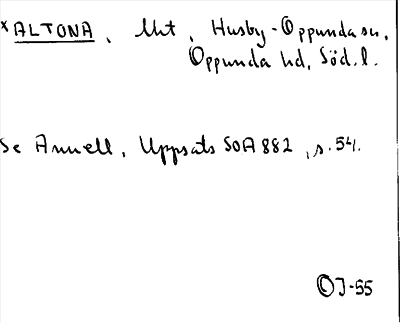 *ALTONA, Uht, Husby-Oppunda sn,
Oppunda hd, Söd.l.
Se Annell, Uppsats SOA 882, s. 54.
OJ-55